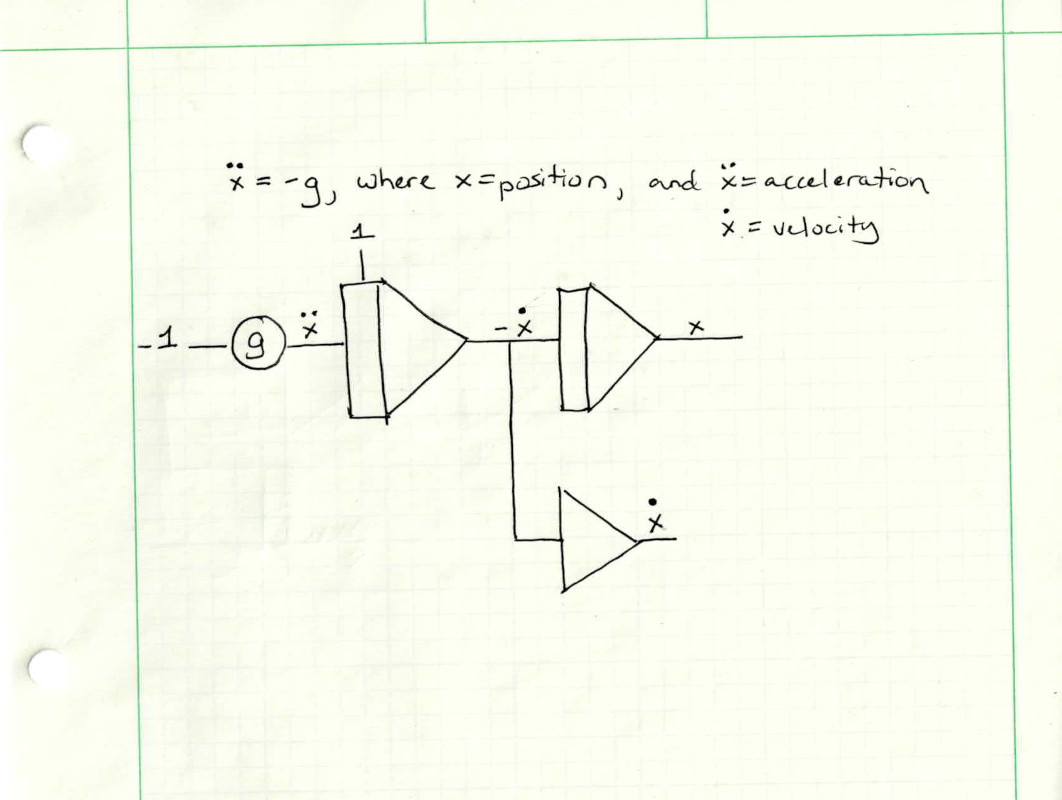 ẍ = -g, where x=position, and ẍ=acceleration
ẋ = velocity
1
-1 g ẍ -ẋ x
ẋ